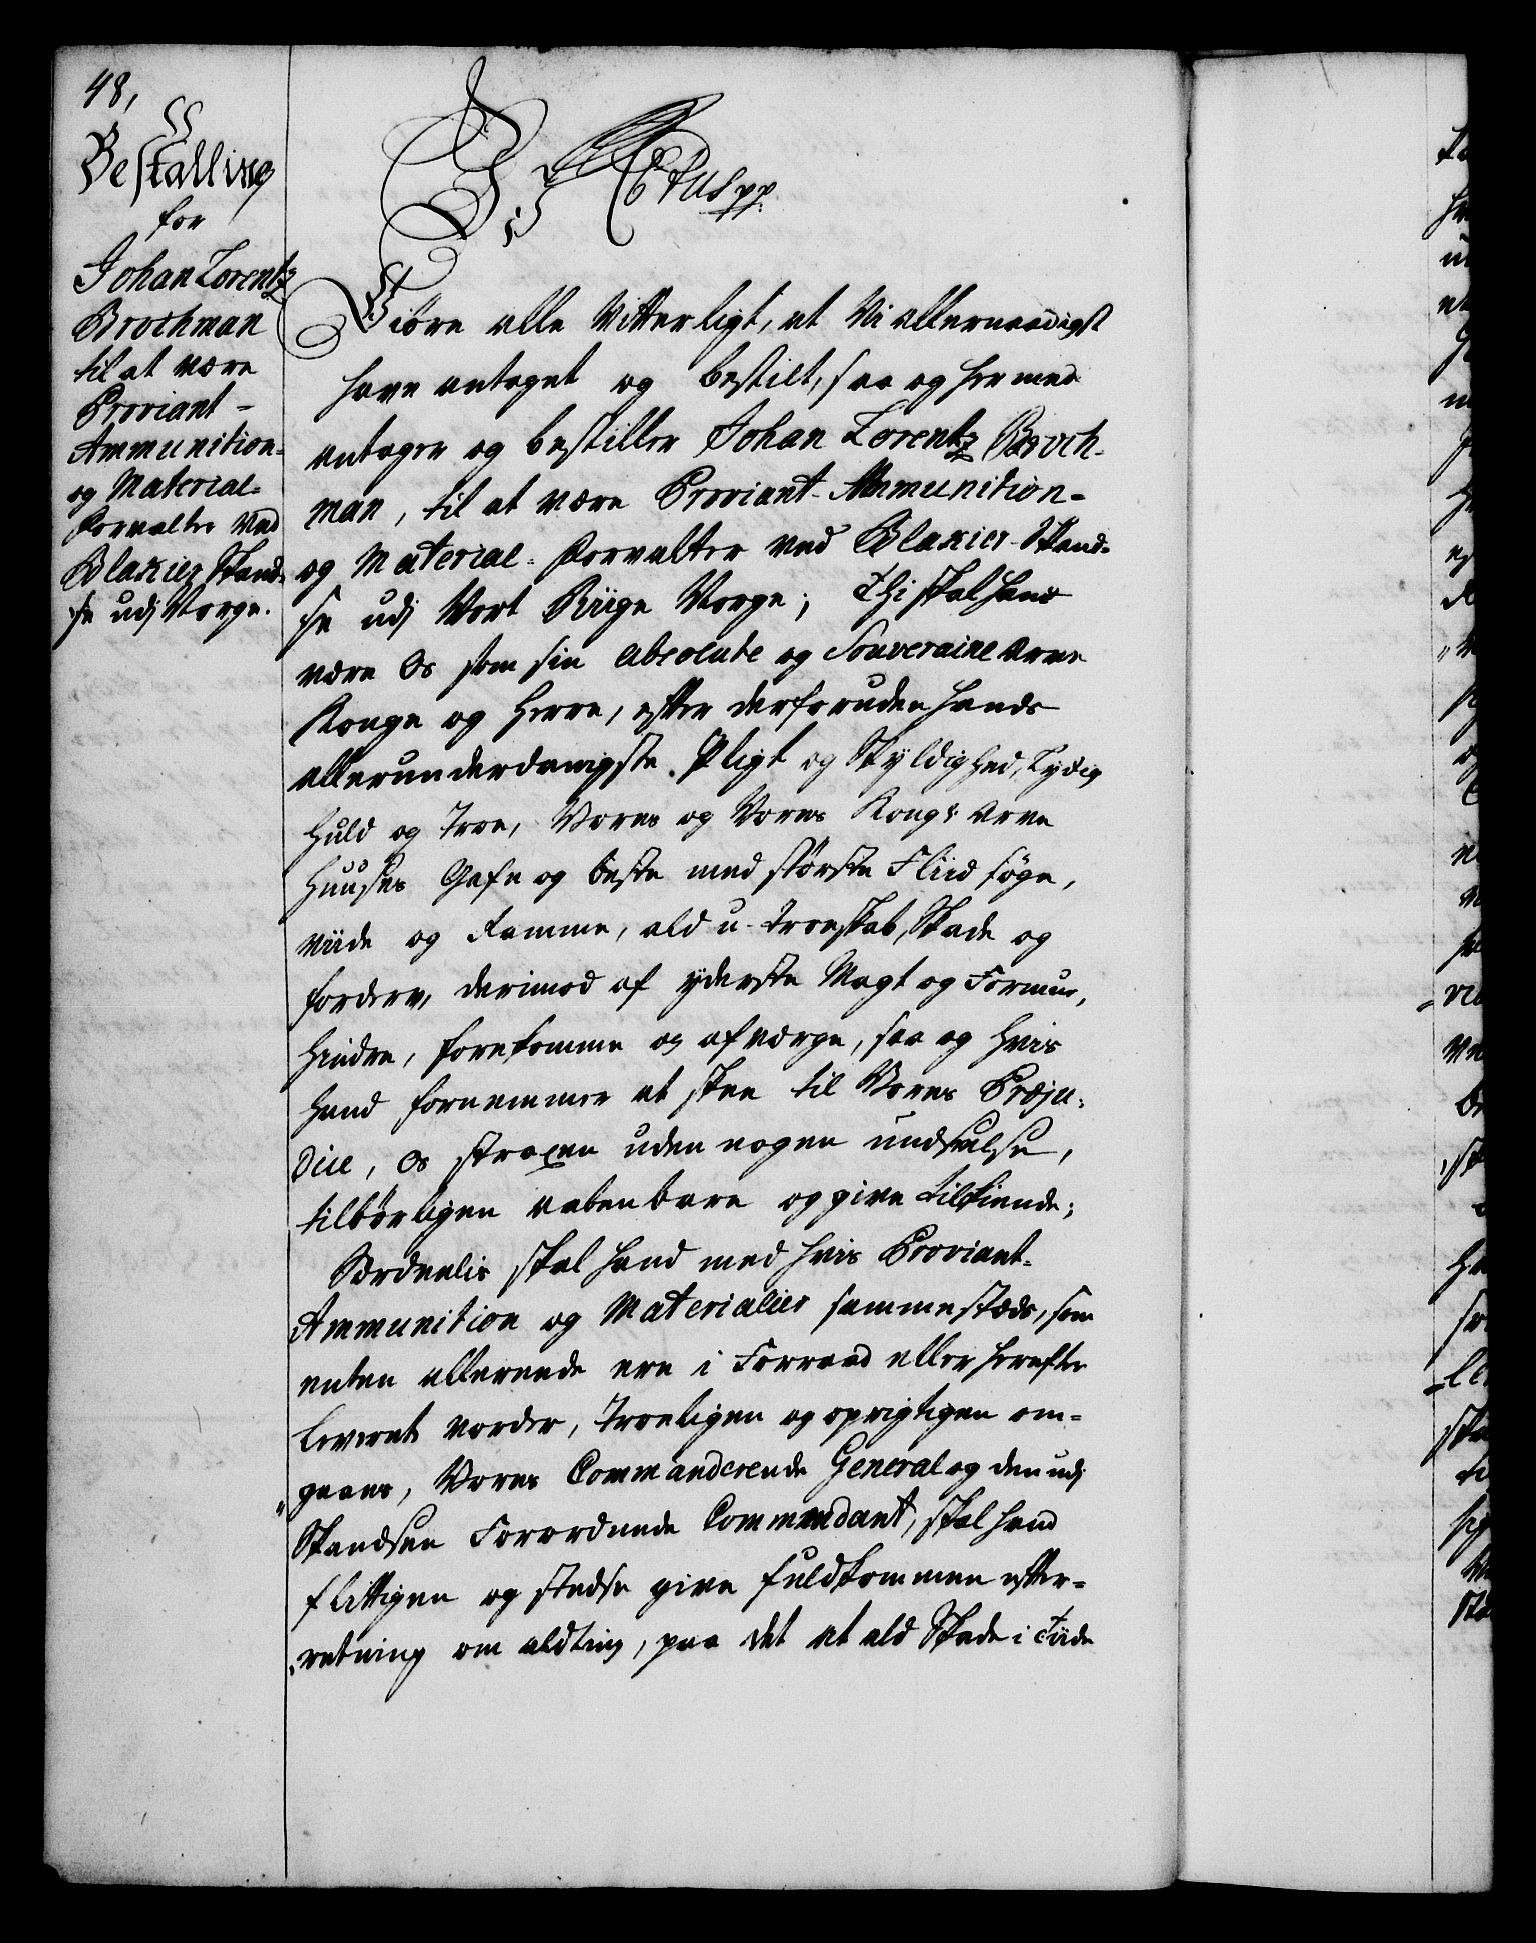 48,
Bestalling
for
Johan Lorentz
Brochman
til at være
Proviant-
Ammunition-
og Material-
Forvalter ved
Blakier Skand-
se udj Norge.
Giøre alle Vitterligt, at Vi allernaadigst
have antaget og bestilt, saa og hermed
antager og bestiller Johan Lorentz Broch-
man, til at være Proviant- Ammunition-
og Material-Forvalter ved Blakier-Skand-
se udj Vort Riige Norge; Thi skal hand
være Os som sin absolute og Souveraine Arve
Konge og Herre, efter derforuden hands
allerunderdanigste Pligt og Skyldighed, Lydig
Huld og Troe, Vores og Vores Kongl. Arve
Huuses Gafn og beste med største Fliid søge,
viide og Ramme, ald u-troeskab, Skade og
forderv, derimod af yderste Magt og Formue,
hindre, forekomme og afværge, saa og hvis
hand fornemmer at skee til Vores Præju-
dice, Os straxen uden nogen undseelse,
tilbørligen aabenbare og give tilkiende;
Særdeelis skal hand med hvis Proviant-
Ammunition og Materialier sammestæds, som
enten allereede ere i Forraad eller herefter
leverit vorder, troeligen og oprigtigen om-
gaaes, Vores Commanderende General og den udj
Skandsen Forordnede Commendant, skal hand
flittigen og stedse give fuldkommen efter-
retning om alting, paa det at ald Skade i Tiide